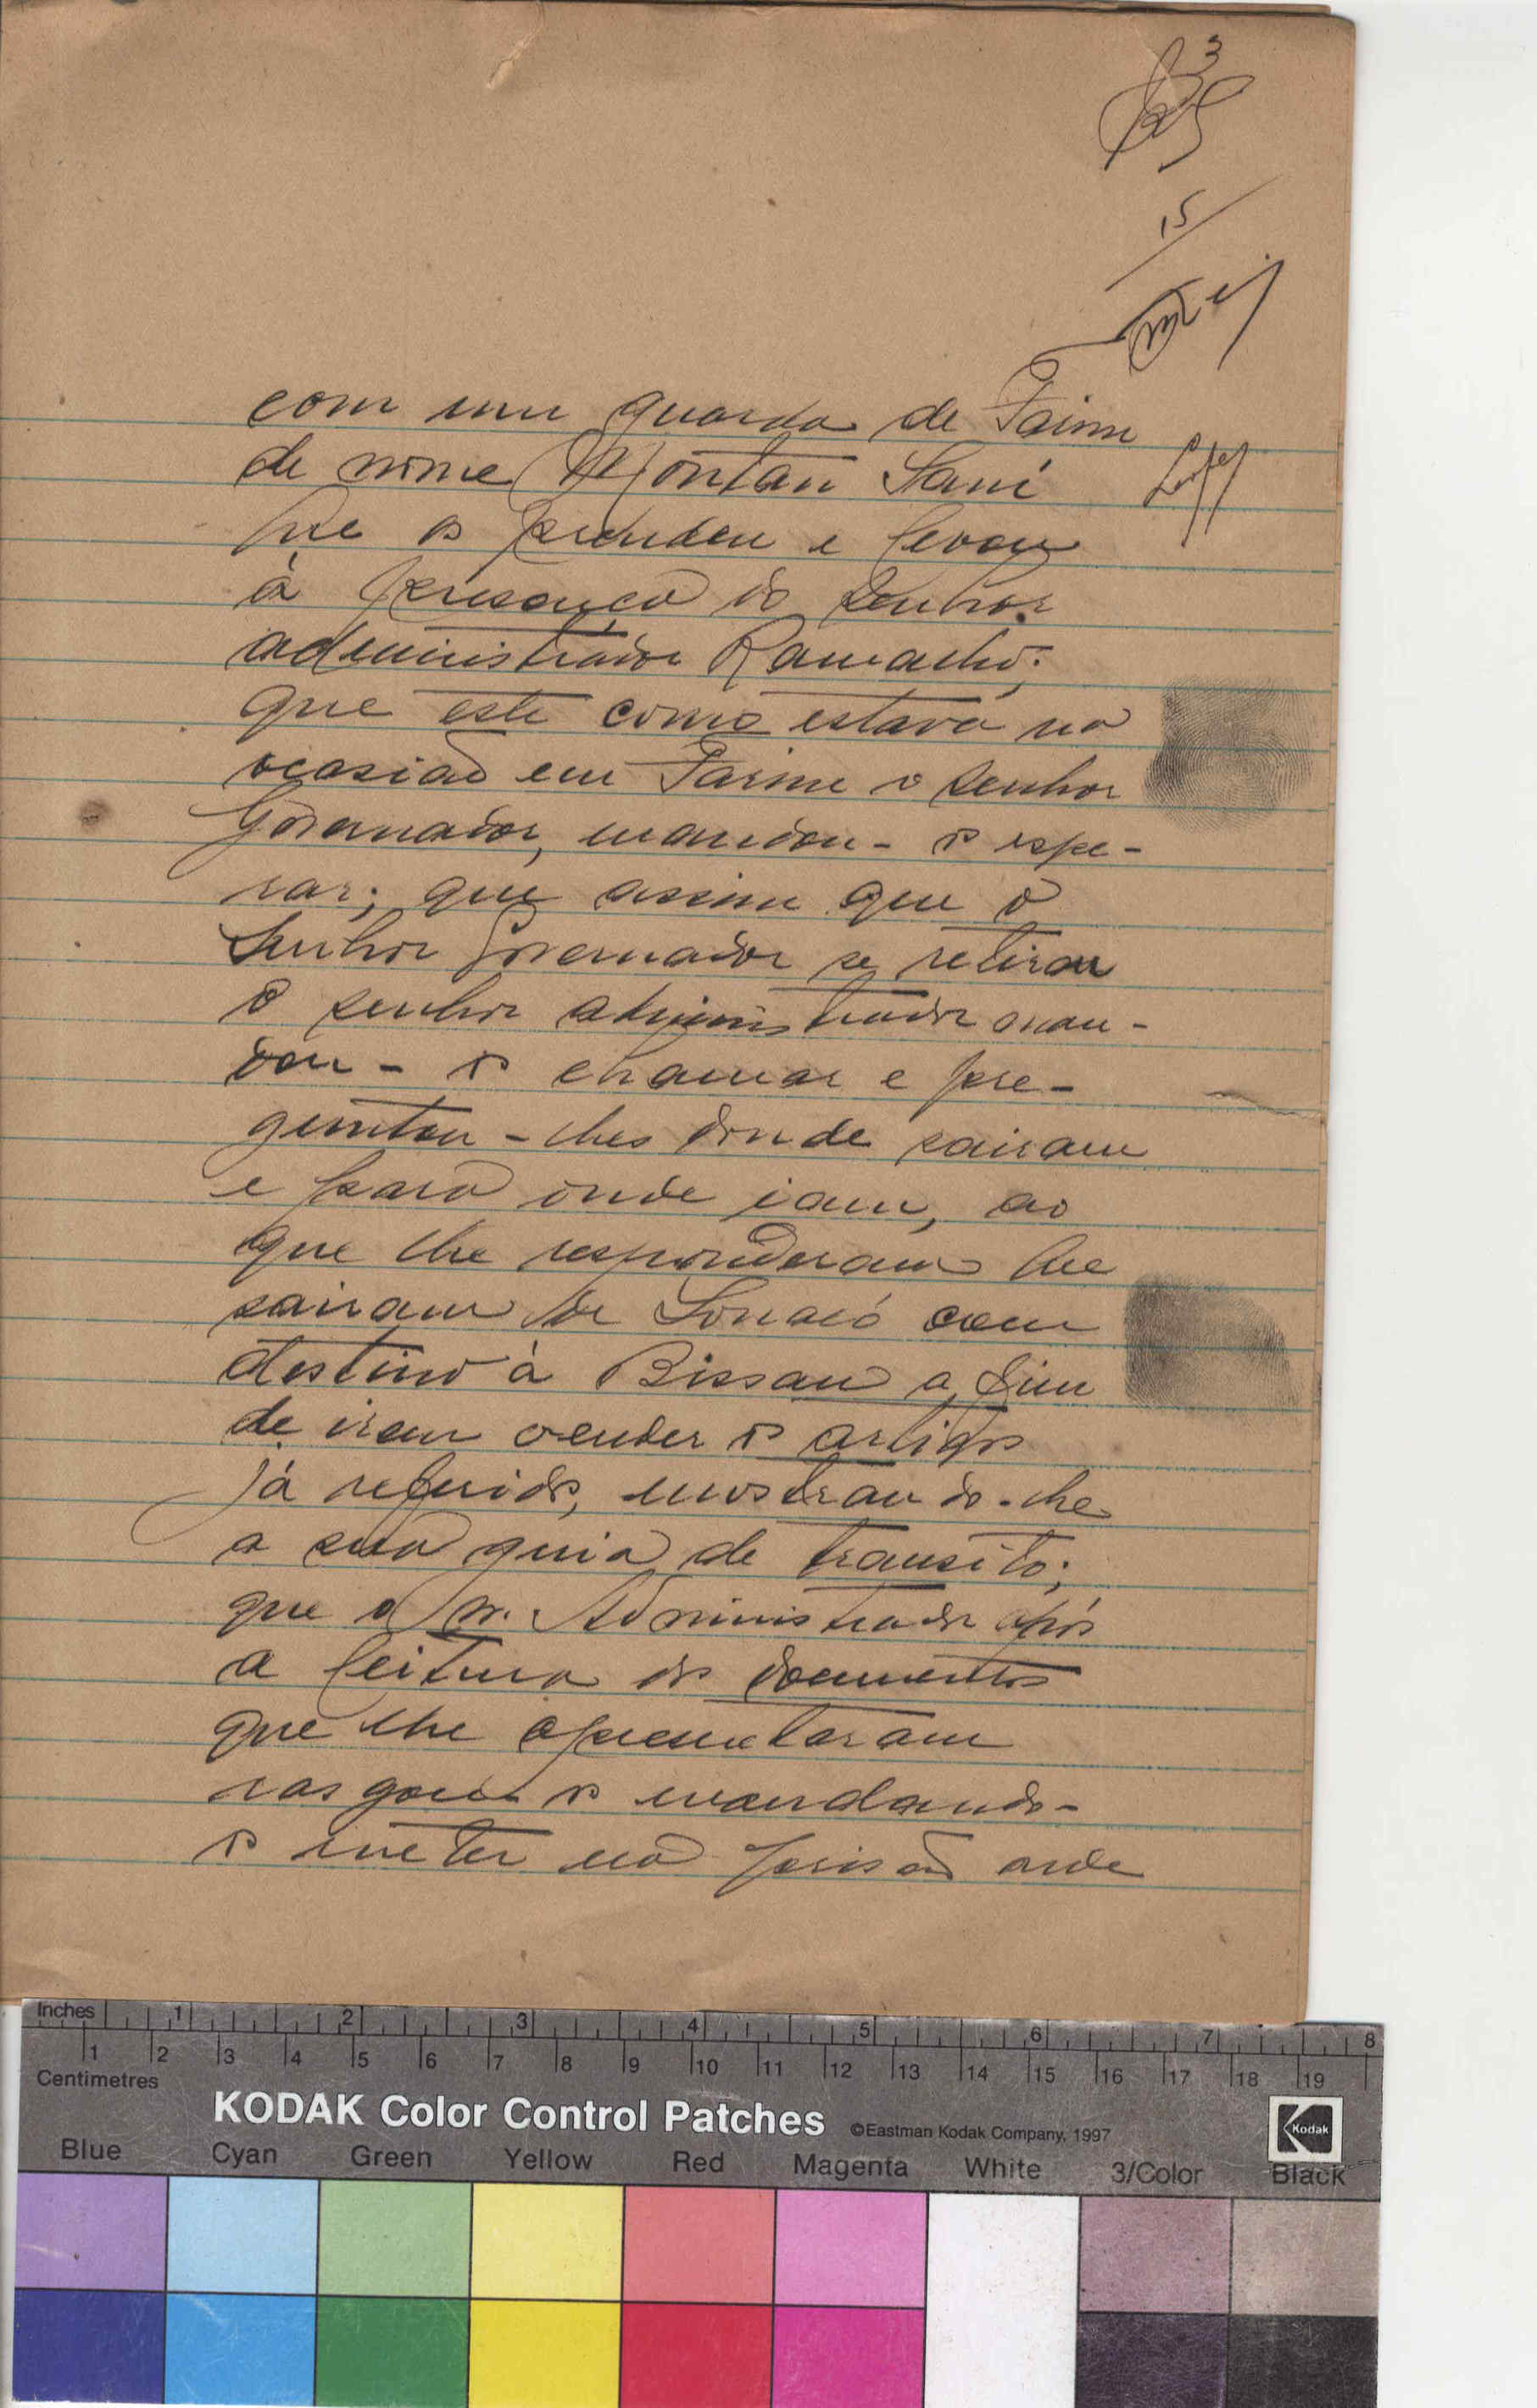 3
15
com um guarda de Farim
de nome Montan Sani
que os prendeu e levou
à presença do Senhor
administrador Ramalho;
que este como estava na
ocasião em Farim o Senhor
Governador, mandou-os espe-
rar; que assim que o
Senhor Governador se retirou
o senhor administrador man-
dou-os chamar e pre-
guntou-lhes donde sairam
e para onde iam, ao
que lhe responderam que
sairam de Sonacó com
destino à Bissau a fim
de irem vender os artigos
já referidos, mostrando-lhe
a sua guia de transito;
que o Sr. Administrador após
a leitura dos documentos
que lhe apresentaram
rasgou os mandando-
os meter na prisão onde
Inches 1 2 3 4 5 6 7 8
Centimetres 1 2 3 4 5 6 7 8 9 10 11 12 13 14 15 16 17 18 19
KODAK Color Control Patches ©Eastman Kodak Company, 1997 Kodak
Blue Cyan Green Yellow Red Magenta White 3/Color Black